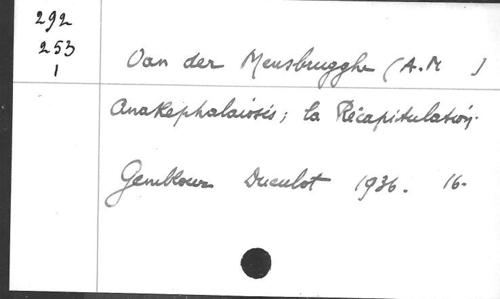 292
253
1
Van der Mensbrugghe (A.M )
Anakephalaiosis; la Récapitulation.
Gembloux Duculot 1936. 16-